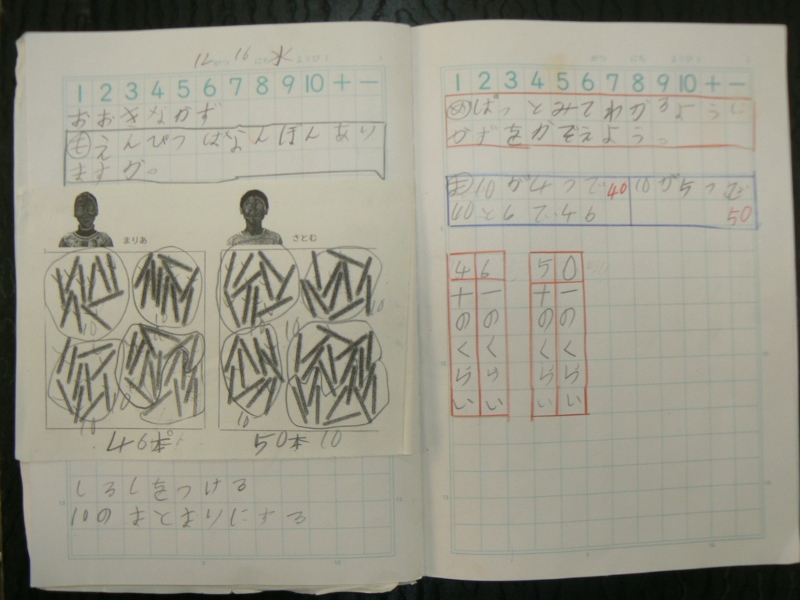 12 16 水
1 2 3 4 5 6 7 8 9 10 + −
おおきなかず
も えんぴつはなんぼんあり
ますか。
まりあ
さとむ
10 10 10 10
10 10
46ぽ
50本 10
しるしをつける
10のまとまりにする
1 2 3 4 5 6 7 8 9 10 + −
め ぱっとみてわかるように
かずをかぞえよう。
ま 10が4つで40 10が5つで
40と6で46 50
4 6 5 0
十 一 十 一
の の の の
く く く く
ら ら ら ら
い い い い